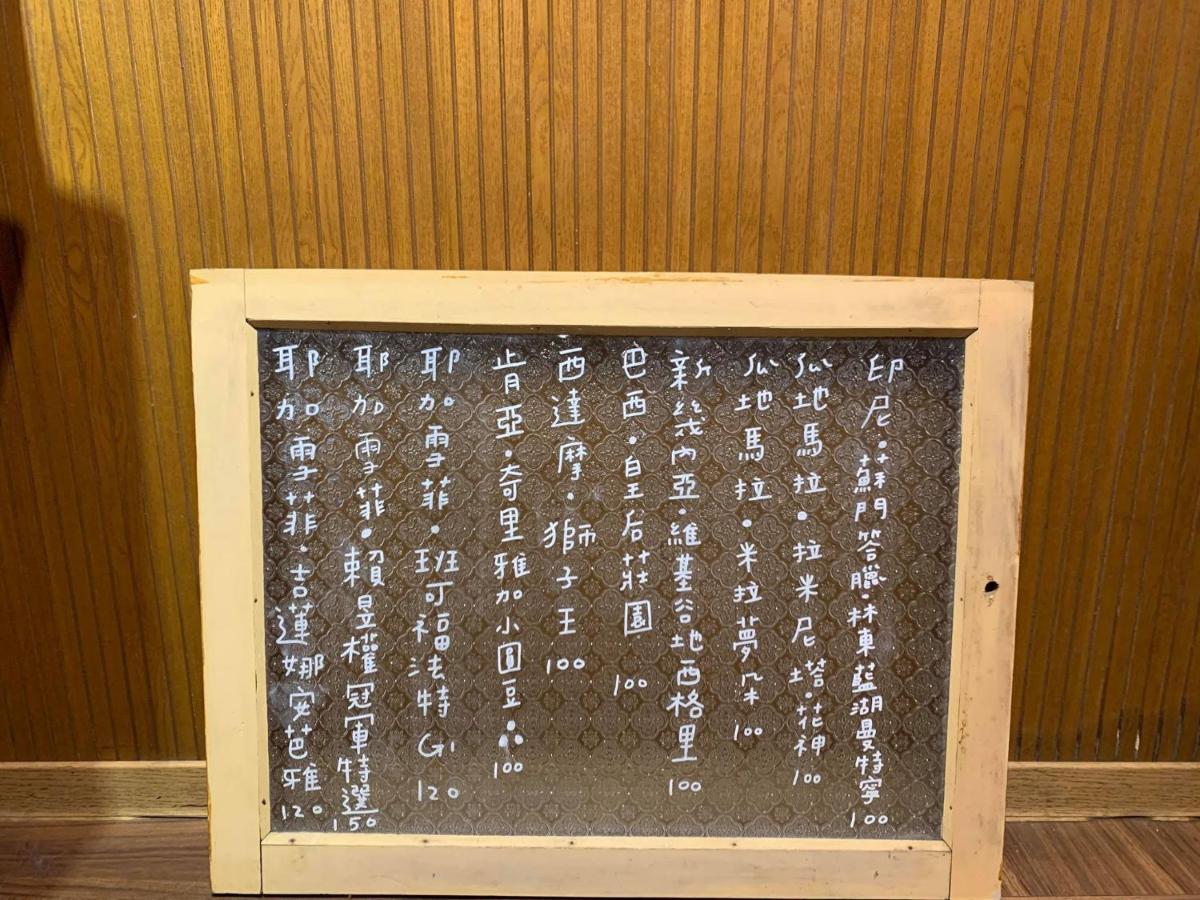 印尼·蘇門答臘·林東藍湖曼特寧 100
瓜地馬拉·拉米尼塔·花神 100
瓜地馬拉·米拉夢朵 100
新幾內亞·維基谷地西格里 100
巴西·皇后莊園 100
西達摩·獅子王 100
肯亞·奇里雅加小圓豆 100
耶加雪菲·班可福法特G1 120
耶加雪菲·賴昱權冠軍特選 150
耶加雪菲·吉蓮娜安芭雅 120